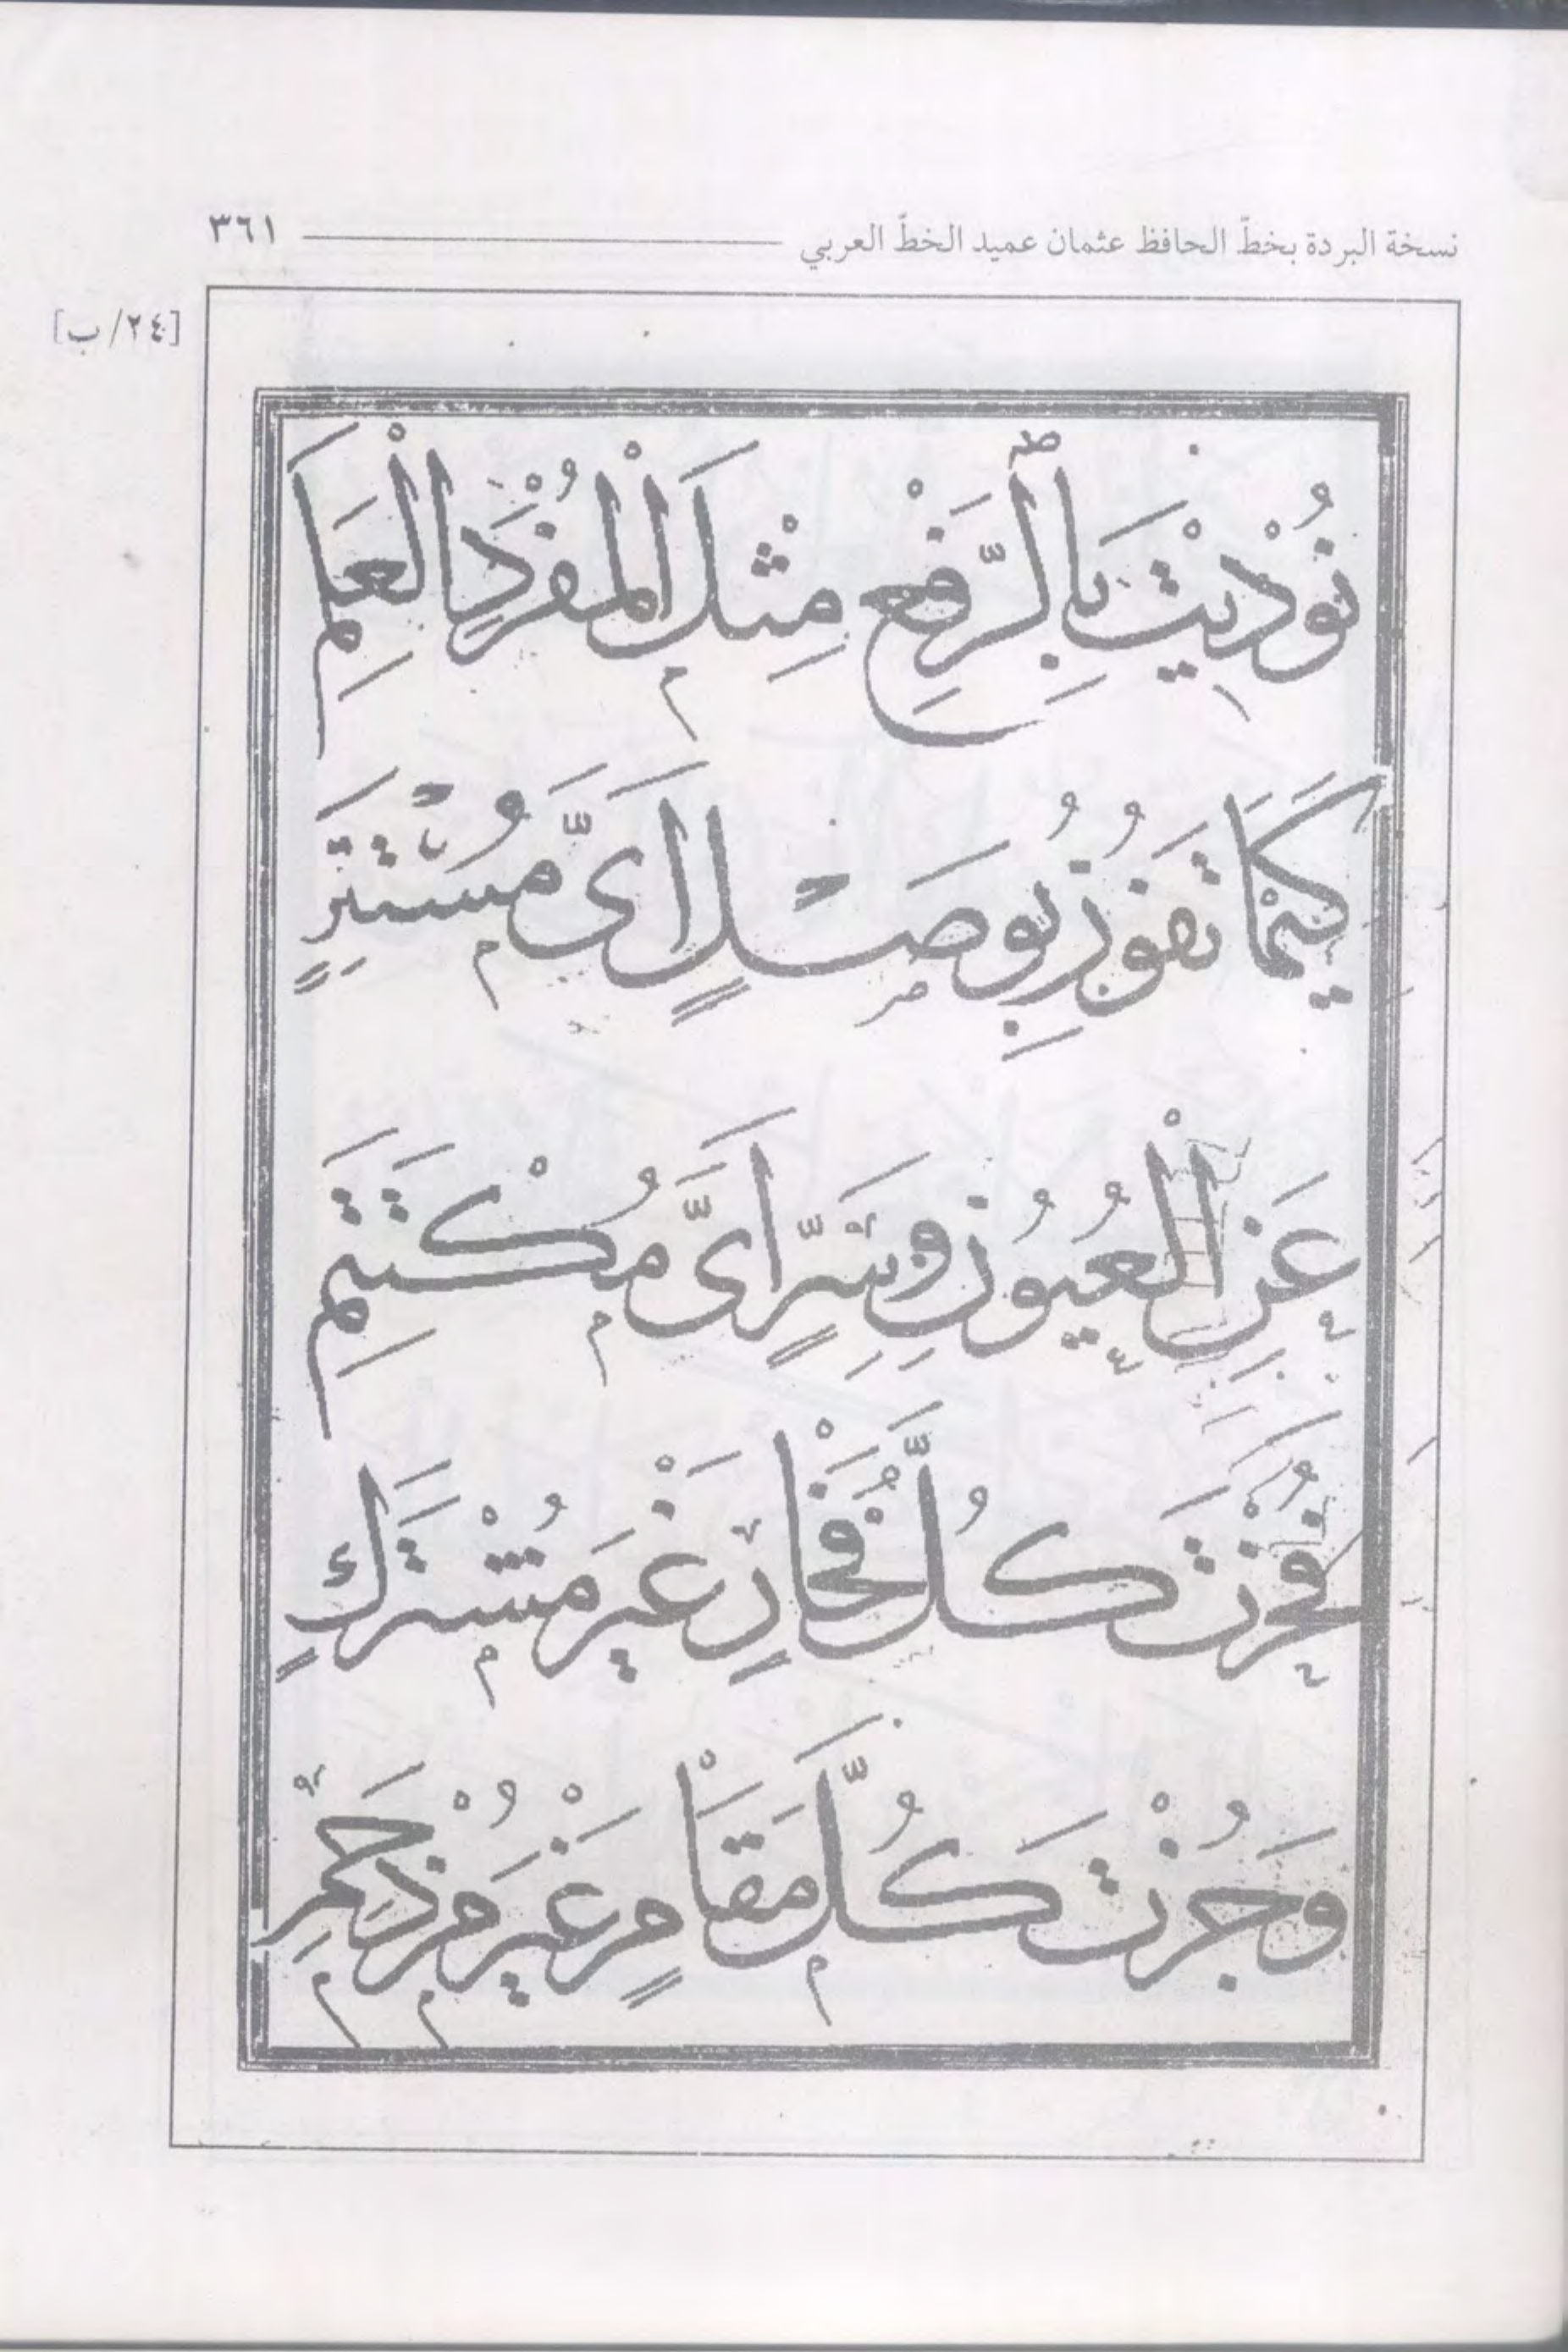 نسخة البردة بخطّ الحافظ عثمان عميد الخطّ العربي ٣٦١
[٢٤/ب]
نُوْدِيْتَ بِالرَّفْعِ مِثْلَ الْمُفْرَدِ الْعَلَمِ
كَيْمَا تَفُوْزَ بِوَصْلٍ اَىِّ مُسْتَتِرٍ
عَنِ الْعُيُوْنِ وَسِرٍّ اَىِّ مُكْتَتَمِ
فَحُزْتَ كُلَّ فَخَارٍ غَيْرَ مُشْتَرَكٍ
وَجُزْتَ كُلَّ مَقَامٍ غَيْرَ مُزْدَحَمِ